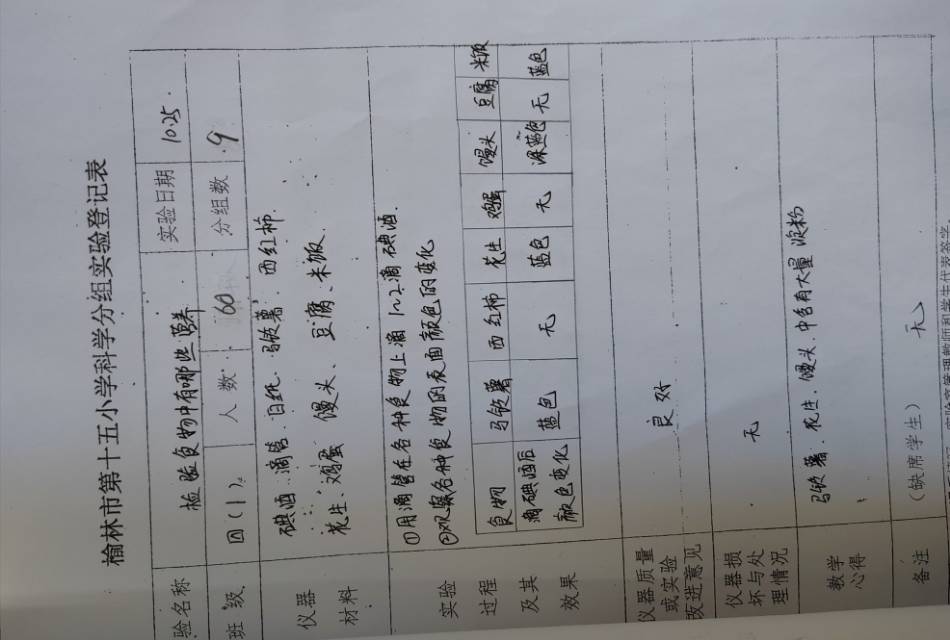 榆林市第十五小学科学分组实验登记表
验名称 检验食物中有哪些营养 实验日期 10.25.
班级 四(1) 人数 60 分组数 9
仪器 碘酒.滴管.白纸.马铃薯.西红柿.
材料 花生、鸡蛋 馒头、豆腐、米饭
实验 ①用滴管在各种食物上滴1~2滴碘酒.
过程 ②观察各种食物的表面颜色的变化
及其
效果
食物 马铃薯 西红柿 花生 鸡蛋 馒头 豆腐 米饭
滴碘酒后 蓝色 无 蓝色 无 深蓝色 无 蓝色
颜色变化
仪器质量
或实验 良好
改进意见
仪器损
坏与处 无
理情况
教学 马铃薯.花生.馒头.中含有大量淀粉
心得
备注 (缺席学生) 无